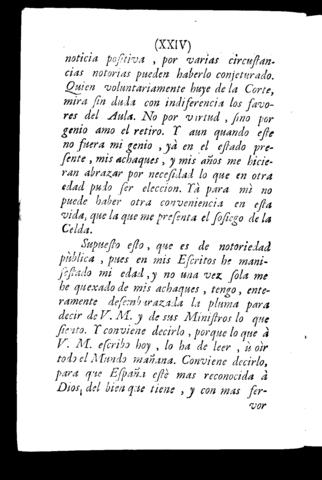 (XXIV)
noticia positiva, por varias circustan-
cias notorias pueden haberlo conjeturado.
Quien voluntariamente huye de la Corte,
mira sin duda con indiferencia los favo-
res del Aula. No por virtud, sino por
genio amo el retiro. Y aun quando este
no fuera mi genio, yà en el estado pre-
sente, mis achaques, y mis años me hicie-
ran abrazar por necesidad lo que en otra
edad pudo ser eleccion. Yà para mì no
puede haber otra conveniencia en esta
vida, que la que me presenta el sosiego de la
Celda.
Supuesto esto, que es de notoriedad
pùblica, pues en mis Escritos he mani-
festado mi edad, y no una vez sola me
he quexado de mis achaques, tengo, ente-
ramente desembarazada la pluma para
decir de V. M. y de sus Ministros lo que
siento. Y conviene decirlo, porque lo que à
V. M. escribo hoy, lo ha de leer, ù oìr
todo el Mundo mañana. Conviene decirlo,
para que España estè mas reconocida à
Dios, del bien que tiene, y con mas fer-
vor